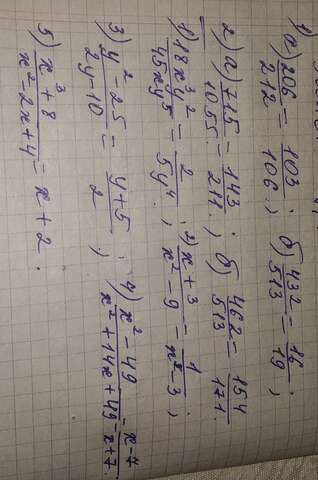 1) а) 206/212 = 103/106; б) 432/513 = 16/19;
2) а) 715/1055 = 143/211; б) 462/513 = 154/171.
1) 18x³y/45xy⁵ = 2/5y⁴; 2) x+3/x²-9 = 1/x-3;
3) y²-25/2y-10 = y+5/2; 4) x²-49/x²+14x+49 = x-7/x+7.
5) x³+8/x²-2x+4 = x+2.